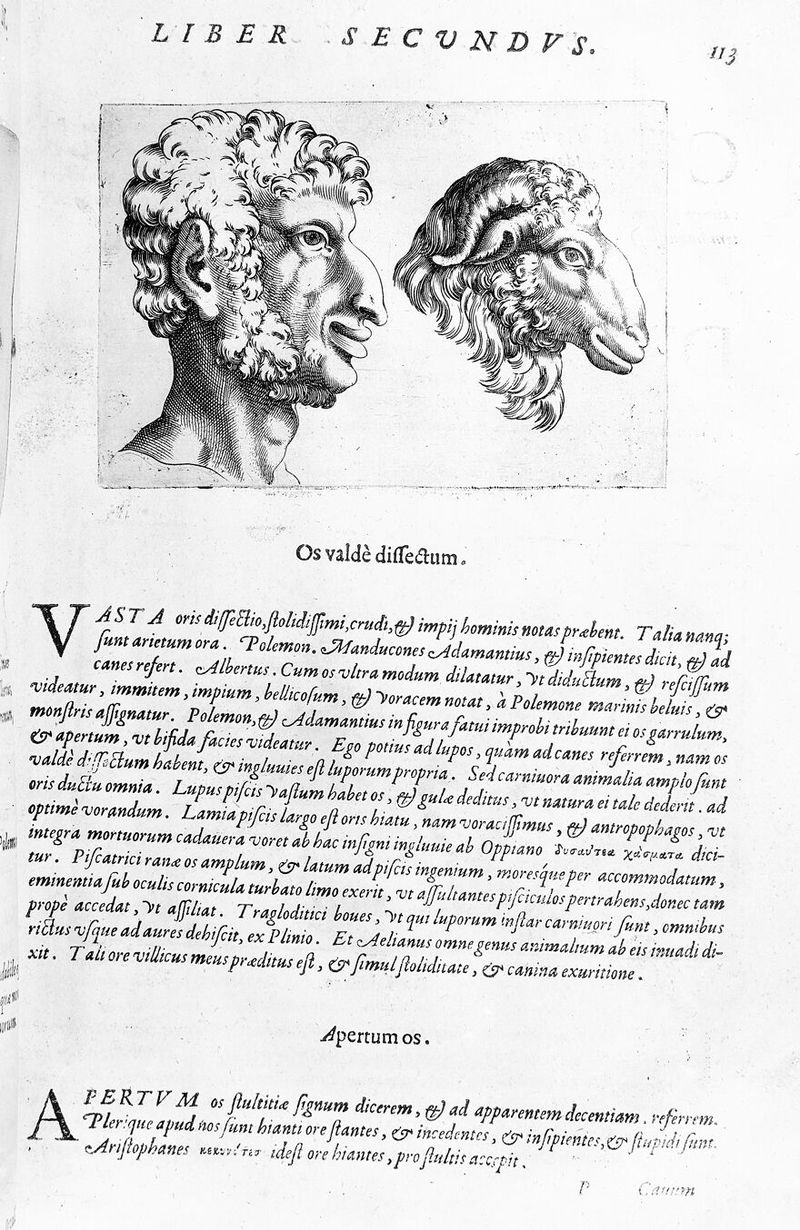 LIBER SECVNDVS.
113
Os valdè dissectum.
VASTA oris dissectio, stolidissimi, crudi, & impij hominis notas præbent. Talia nanq;
sunt arietum ora. Polemon. Manducones Adamantius, & insipientes dicit, & ad
canes refert. Albertus. Cum os vltra modum dilatatur, vt diductum, & rescissum
videatur, immitem, impium, bellicosum, & voracem notat, à Polemone marinis beluis, &
monstris assignatur. Polemon, & Adamantius in figura fatui improbi tribuunt ei os garrulum,
& apertum, vt bifida facies videatur. Ego potius ad lupos, quàm ad canes referrem, nam os
valdè dissectum habent, & ingluuies est luporum propria. Sed carniuora animalia amplo sunt
oris ductu omnia. Lupus piscis vastum habet os, & gulæ deditus, vt natura ei tale dederit. ad
optimè vorandum. Lamia piscis largo est oris hiatu, nam voracissimus, & antropophagos, vt
integra mortuorum cadauera voret ab hac insigni ingluuie ab Oppiano χάσματα dici-
tur. Piscatrici ranæ os amplum, & latum ad piscis ingenium, moresque per accommodatum,
eminentia sub oculis cornicula turbato limo exerit, vt assultantes pisciculos pertrahens, donec tam
propè accedat, vt assiliat. Tragloditici boues, vt qui luporum instar carniuori sunt, omnibus
rictus vsque ad aures dehiscit, ex Plinio. Et Aelianus omne genus animalium ab eis inuadi di-
xit. Tali ore villicus meus præditus est, & simul stoliditate, & canina exuritione.
Apertum os.
APERTVM os stultitiæ signum dicerem, & ad apparentem decentiam. referrem.
Plerique apud nos sunt hianti ore stantes, & incedentes, & insipientes, & stupidi sunt.
Aristophanes idest ore hiantes, pro stultis accepit.
P Cauum